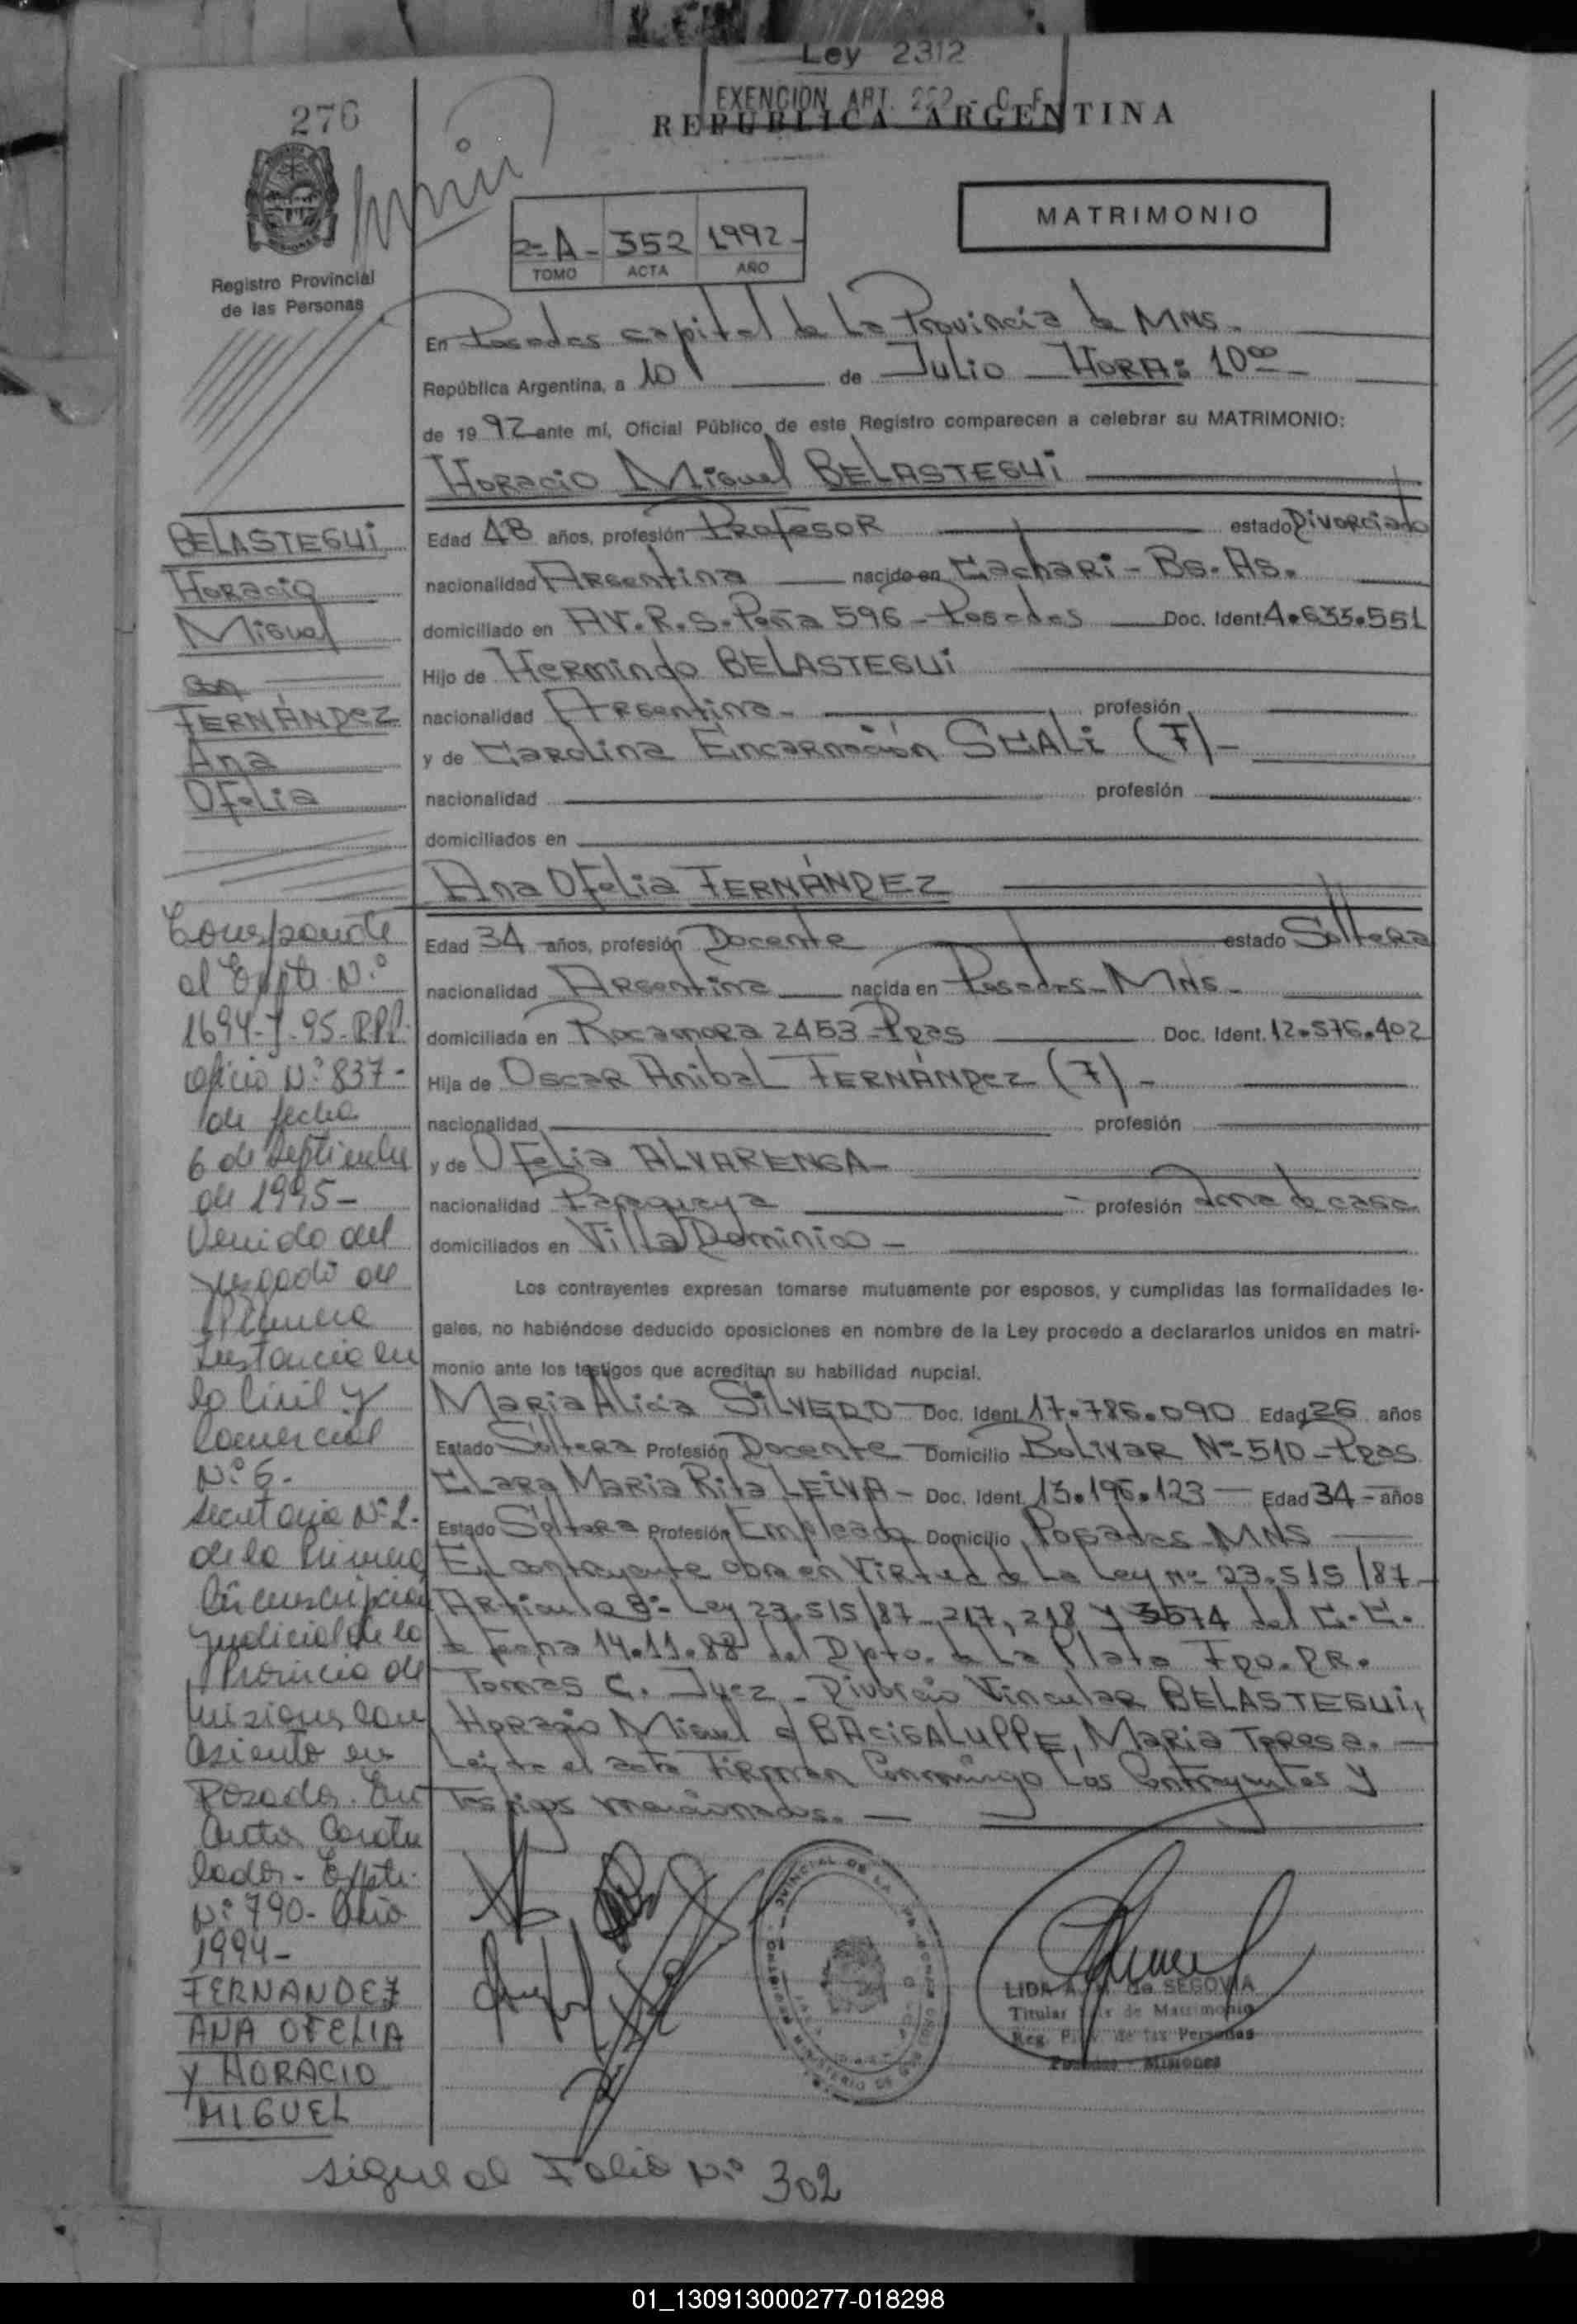 Ley 2312
EXENCION ART. 222 - C. F.
REPUBLICA ARGENTINA
276
Registro Provincial
de las Personas
2=A- 352 1992-
TOMO ACTA AÑO
MATRIMONIO
En Posadas capital de La Provincia de MNS.
República Argentina, a 10 de Julio HORA: 10⁰⁰
de 1992 ante mí, Oficial Público de este Registro comparecen a celebrar su MATRIMONIO:
Horacio Miguel BELASTEGUI
Edad 48 años, profesión Profesor estado Divorciado
nacionalidad Argentina nacido en Cachari - Bs. As.
domiciliado en AV. R. S. Peña 596 - Posadas Doc. Ident. 4.633.551
Hijo de Hermindo BELASTEGUI
nacionalidad Argentina - profesión
y de Carolina Encarnación SCALI (F) -
nacionalidad profesión
domiciliados en
Ana Ofelia FERNÁNDEZ
Edad 34 años, profesión Docente estado Soltera
nacionalidad Argentina nacida en Posadas - MNS -
domiciliada en Rocamora 2453 - Pdas Doc. Ident. 12.576.402
Hija de Oscar Anibal FERNÁNDEZ (F) -
nacionalidad profesión
y de Ofelia ALVARENGA -
nacionalidad Paraguaya - profesión Ama de casa
domiciliados en Villa Dominico -
Los contrayentes expresan tomarse mutuamente por esposos, y cumplidas las formalidades le-
gales, no habiéndose deducido oposiciones en nombre de la Ley procedo a declararlos unidos en matri-
monio ante los testigos que acreditan su habilidad nupcial.
Maria Alicia SILVERO Doc. Ident. 17.786.090 Edad 26 años
Estado Soltera Profesión Docente Domicilio Bolivar Nº 510 - Pdas
Clara Maria Rita LEIVA - Doc. Ident. 13.196.123 Edad 34 - años
Estado Soltera Profesión Empleada Domicilio Posadas MNS
El contrayente obra en Virtud de La Ley nº 23.515/87
Articulo 8º Ley 23.515/87 - 217, 218 y 3574 del C. C.
de fecha 14.11.88 del Dpto. de La Plata Fdo. DR.
Tomas C. Juez - Divorcio Vincular BELASTEGUI,
Horacio Miguel c/ BACIGALUPPE, Maria Teresa.
Leida el acta Firman Conmigo Los Contrayentes y
Testigos mencionados.
BELASTEGUI
Horacio
Miguel
con
FERNÁNDEZ
Ana
Ofelia
Corresponde
al Expte. N.º
1694-J-95-R.P.P.
oficio N.º 837-
de fecha
6 de Septiembre
de 1995-
Venido del
Juzgado de
Primera
Instancia en
lo Civil y
Comercial
N.º 6.
Secretaria Nº 2.
de la Primera
Circunscripcion
Judicial de la
Provincia de
Misiones con
asiento en
Posadas. En
Autos Caratu
lados - Expte.
N.º 790 - Año
1994-
FERNANDEZ
ANA OFELIA
Y HORACIO
MIGUEL
de SEGOVIA
Titular de Matrimonio
Reg. de las Personas
Posadas - Misiones
Sigue al Folio N.º 302
01_130913000277-018298